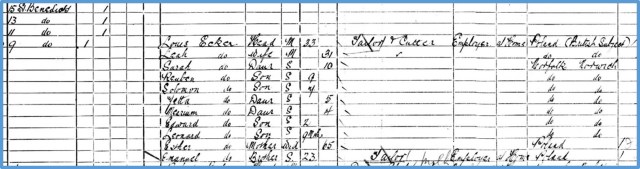 15 St Benedicts 1
13 do 1
11 do 1
9 do 1 Louis Ecker Head M 33 Tailor & Cutter Employer at Home Poland (British Subject)
Leah do Wife M 31 do do
Sarah do Daur S 10 Norfolk Norwich
Reuben do Son S 9 do do
Solomon do Son S 7 do do
Yetta do Daur S 5 do do
Merriam do Daur S 4 do do
Edward do Son S 2 do do
Leonard do Son S 9 mths do do
Esher do Mother Wid 65 Poland
Emanuel do Brother S 23 Tailor Employer at Home Poland